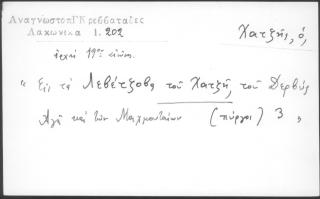 Ἀναγνωστοπ Γκρεββαταίες
Λακωνικα 1.202
Χατζῆς, ὁ,
ἀρχὴ 19ου αἰῶν.
" Εἰς τὰ Λεβέτζοβα τοῦ Χατζῆ, τοῦ Δερβὺς
Ἀγᾶ καὶ τῶν Μαχμουταίων (πύργοι) 3 "